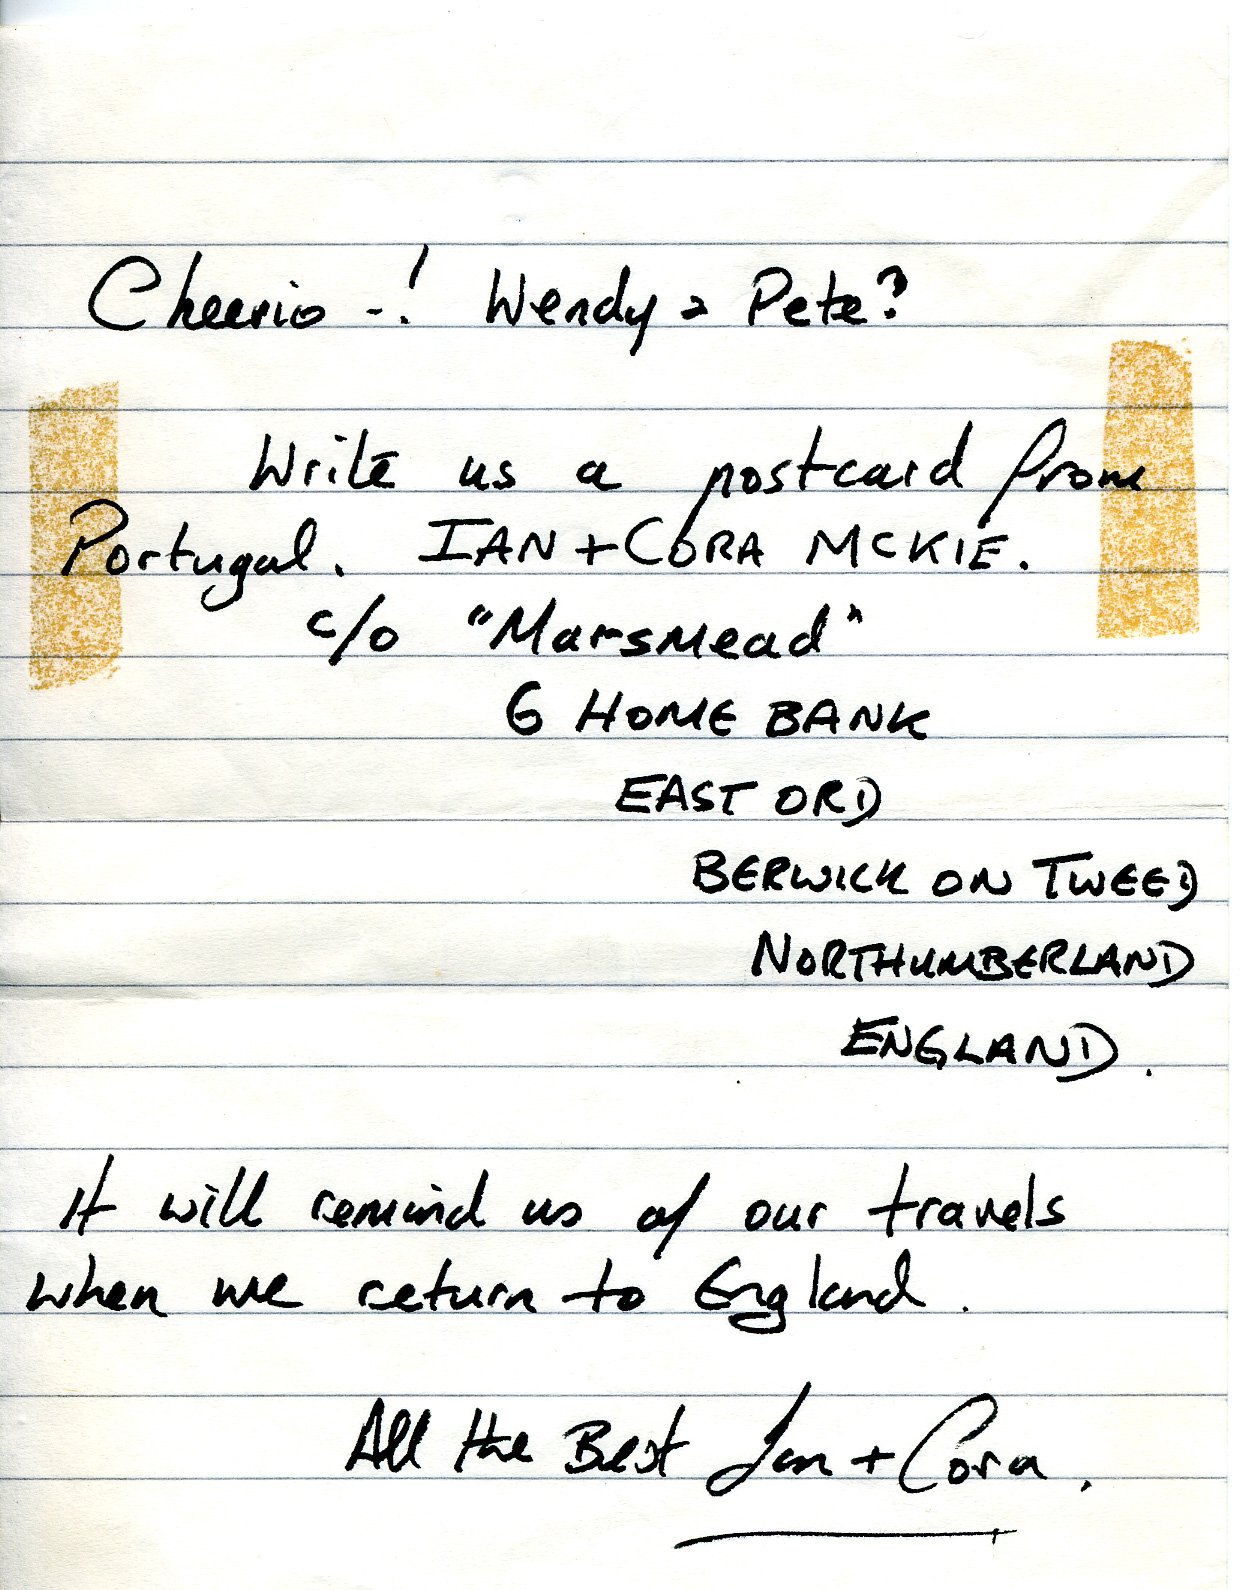 Cheerio -! Wendy + Pete?
Write us a postcard from
Portugal. IAN + CORA MCKIE.
c/o "Marsmead"
6 HOME BANK
EAST ORD
BERWICK ON TWEED
NORTHUMBERLAND
ENGLAND.
It will remind us of our travels
when we return to England.
All the Best Ian + Cora.